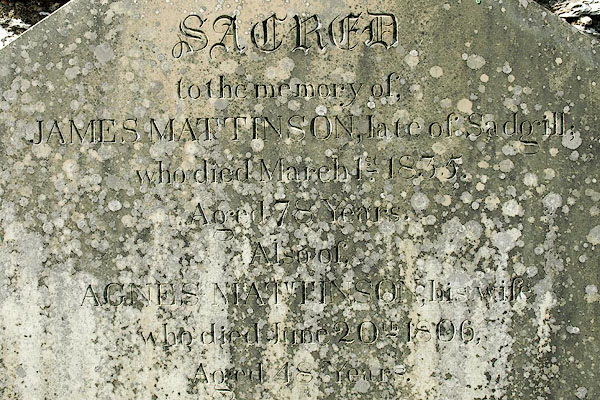 SACRED
to the memory of,
JAMES MATTINSON, late of Sadgill;
who died March 1st 1835.
Aged 78 Years.
Also of,
AGNES MATTINSON, his wife
who died June 20th 1806,
Aged 48 Years.